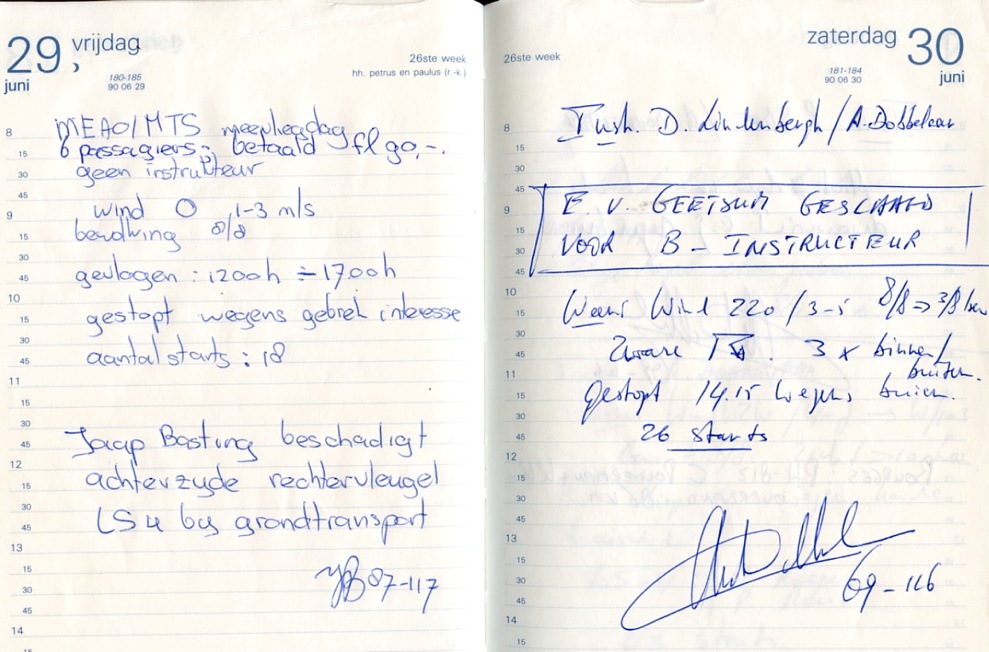 29 vrijdag
juni
180-185
90 06 29
26ste week
hh. petrus en paulus (r.-k.)
8
MEAO/MTS meevliegdag
6 passagiers; betaald fl 90,-.
15
30
geen instrukteur
45
9
wind O 1-3 m/s
15
bewolking 8/8
30
45
gevlogen : 1200h ÷ 1700h
10
15
gestopt wegens gebrek interesse
30
45
aantal starts : 18
11
15
30
45
Jaap Bosting beschadigt
12
15
achterzyde rechtervleugel
30
45
LS4 by grondtransport
13
15
30
07-117
45
14
26ste week
zaterdag 30
juni
181-184
90 06 30
8
Instr. D. Lindenbergh / A. Dobbelaar
15
30
45
9
E. V. GEETSUM GESLAAGD
15
30
VOOR B - INSTRUCTEUR
45
10
Wind 220 / 3-5 8/8 => 3/8
15
30
45
Zware 3 x binnen/
buiten.
11
15
gestopt 14.15 wegens buien.
30
45
26 starts
12
15
30
45
13
15
30
69-116
45
14
15